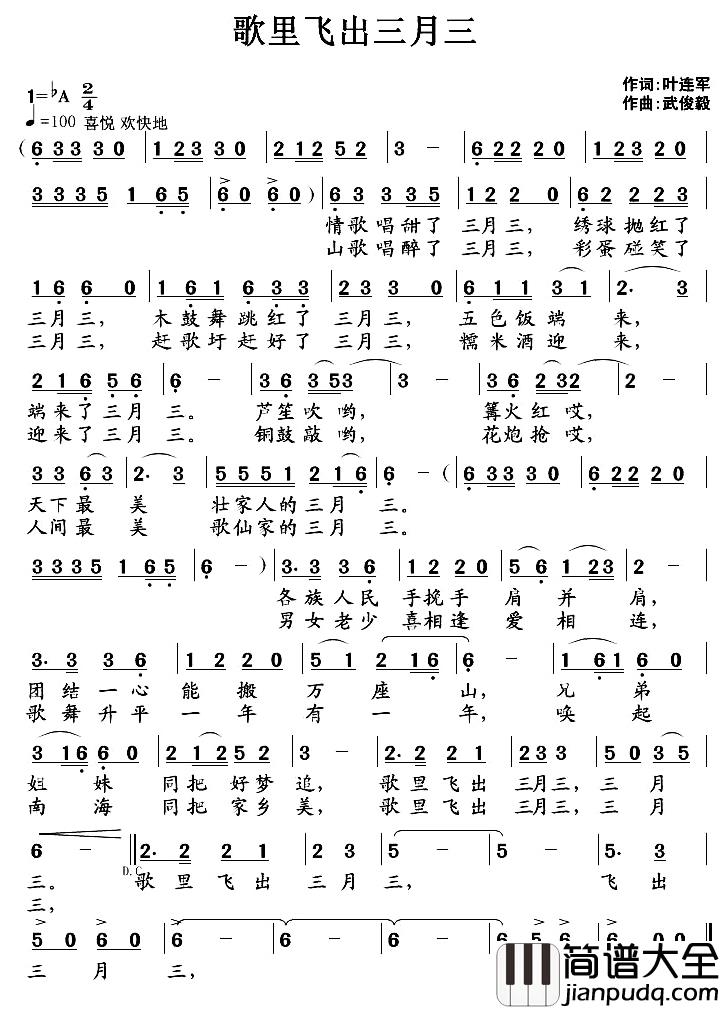 歌里飞出三月三
1=♭A 2/4
作词:叶连军
♩=100 喜悦 欢快地
作曲:武俊毅
(6 3 3 3 0 | 1 2 3 3 0 | 2 1 2 5 2 | 3 - | 6 2 2 2 0 | 1 2 3 2 0 |
3 3 3 5 1 6 5 | 6 0 6 0 ) | 6 3 3 3 5 | 1 2 2 0 | 6 2 2 2 3 |
情歌唱甜了 三月三, 绣球抛红了
山歌唱醉了 三月三, 彩蛋碰笑了
1 6 6 0 | 1 6 1 6 3 3 | 2 3 3 0 | 6 1 1 3 1 | 2· 3 |
三月三, 木鼓舞跳红了 三月三, 五色饭端 来,
三月三, 赶歌圩赶好了 三月三, 糯米酒迎 来,
2 1 6 5 6 | 6 - | 3 6 3 5 3 | 3 - | 3 6 2 3 2 | 2 - |
端来了三月 三。 芦笙吹哟, 篝火红哎,
迎来了三月 三。 铜鼓敲哟, 花炮抢哎,
3 3 6 3 | 2· 3 | 5 5 5 1 2 1 6 | 6 - ( | 6 3 3 3 0 | 6 2 2 2 0 |
天下最 美 壮家人的三月 三。
人间最 美 歌仙家的三月 三。
3 3 3 5 1 6 5 | 6 - ) | 3· 3 3 6 | 1 2 2 0 | 5 6 1 2 3 | 2 - |
各族人民 手挽手 肩并 肩,
男女老少 喜相逢 爱相 连,
3· 3 3 6 | 1 2 2 0 | 5 1 2 1 6 | 6 - | 1 6 1 6 0 |
团结一心 能搬 万座 山, 兄弟
歌舞升平 一年 有一 年, 唤起
3 1 6 6 0 | 2 1 2 5 2 | 3 - | 2· 2 2 1 | 3 3 3 | 5 0 3 5 |
姐妹 同把好梦 追, 歌里飞出 三月三, 三月
南海 同把家乡 美, 歌里飞出 三月三, 三月
6 - ‖ 2· 2 2 2 1 | 2 3 | 5 - | 5 - | 5· 3 |
D.C
三。 歌里飞出 三月 三, 飞出
三,
5 0 6 0 | 6 - | 6 - | 6 - | 6 0 ‖
三月 三,
简谱大全
jianpudq.com